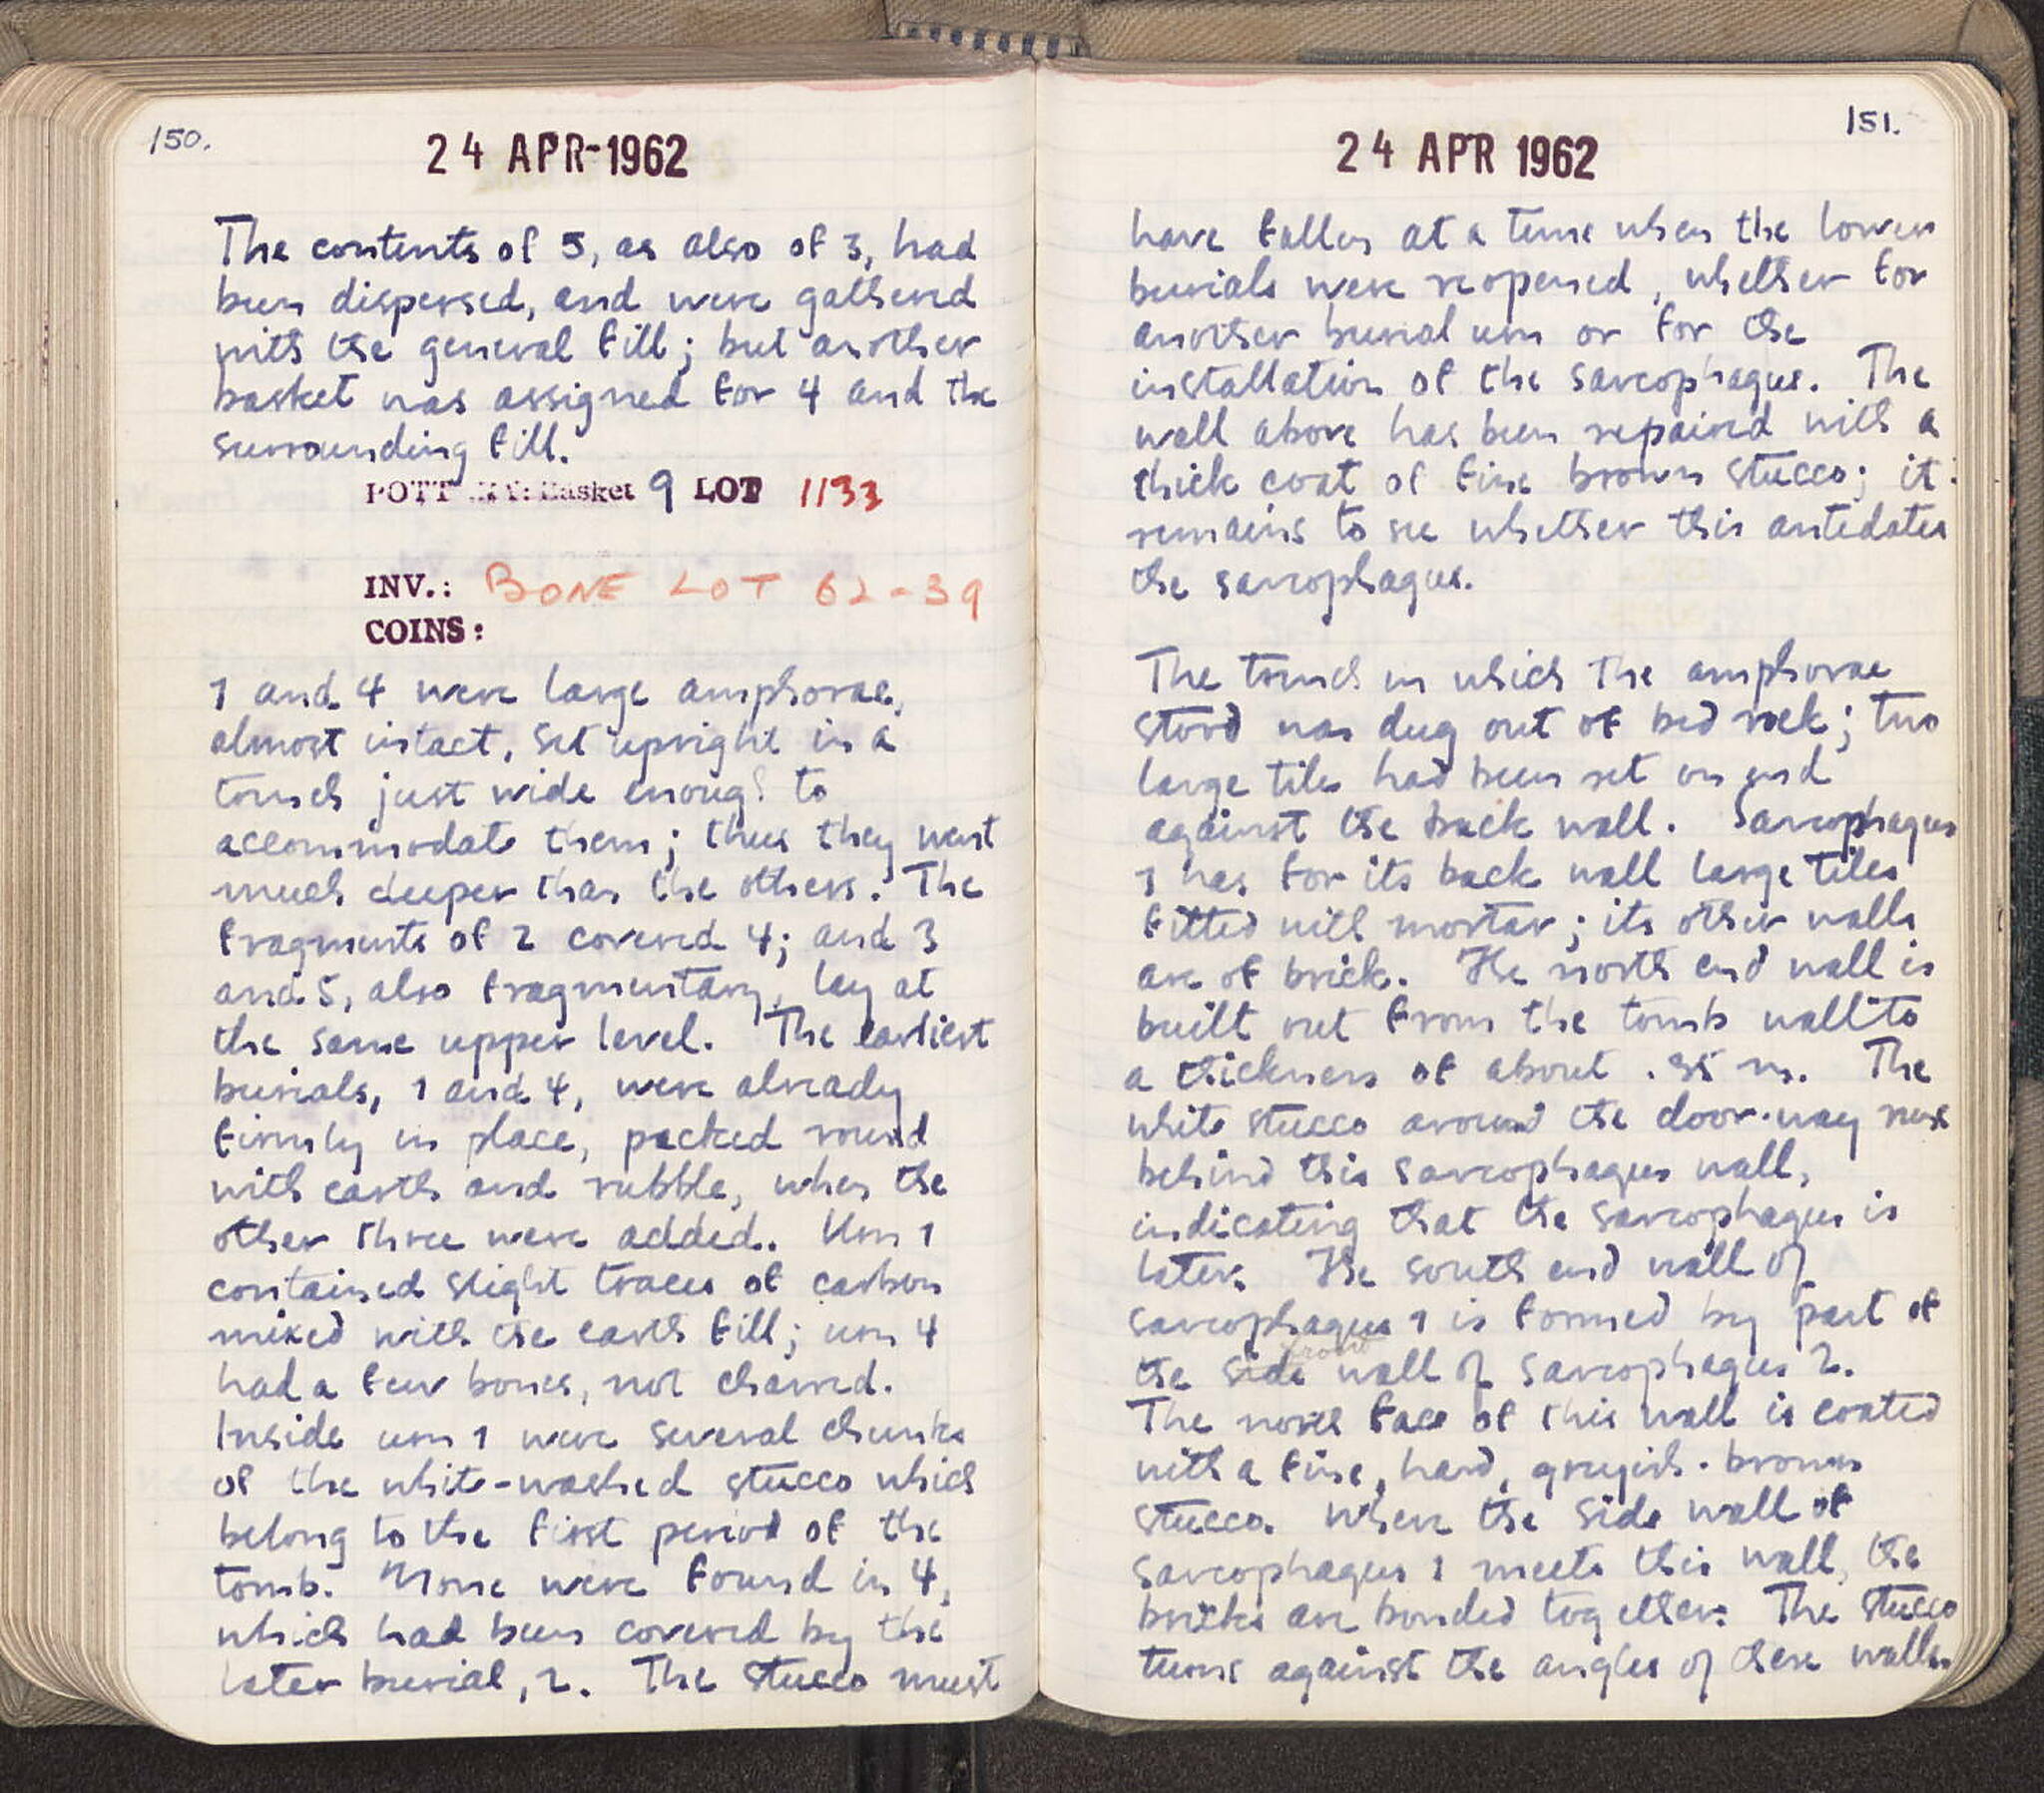 150.
24 APR-1962
The contents of 5, as also of 3, had
been dispersed, and were gathered
with the general fill; but another
basket was assigned for 4 and the
surrounding fill.
POTTERY: Basket 9 LOT 1133
INV.: BONE LOT 62-39
COINS:
1 and 4 were large amphorae,
almost intact, set upright in a
trench just wide enough to
accommodate them; thus they went
much deeper than the others. The
fragments of 2 covered 4; and 3
and 5, also fragmentary, lay at
the same upper level. The earliest
burials, 1 and 4, were already
firmly in place, packed round
with earth and rubble, when the
other three were added. Urn 1
contained slight traces of carbon
mixed with the earth fill; urn 4
had a few bones, not charred.
Inside urn 1 were several chunks
of the white-washed stucco which
belong to the first period of the
tomb. None were found in 4,
which had been covered by the
later burial, 2. The stucco must
151.
24 APR 1962
have fallen at a time when the lower
burials were reopened, whether for
another burial urn or for the
installation of the sarcophagus. The
wall above has been repaired with a
thick coat of fine brown stucco; it
remains to see whether this antedates
the sarcophagus.
The trench in which the amphorae
stood was dug out of bed rock; two
large tiles had been set on end
against the back wall. Sarcophagus
1 has for its back wall large tiles
fitted with mortar; its other walls
are of brick. The north end wall is
built out from the tomb wall to
a thickness of about .35 m. The
white stucco around the door-way runs
behind this sarcophagus wall,
indicating that the sarcophagus is
later. The south end wall of
sarcophagus 1 is formed by part of
front
the side wall of sarcophagus 2.
The north face of this wall is coated
with a fine, hard, greyish-brown
stucco. Where the side wall of
sarcophagus 1 meets this wall, the
bricks are bonded together. The stucco
turns against the angles of these walls.